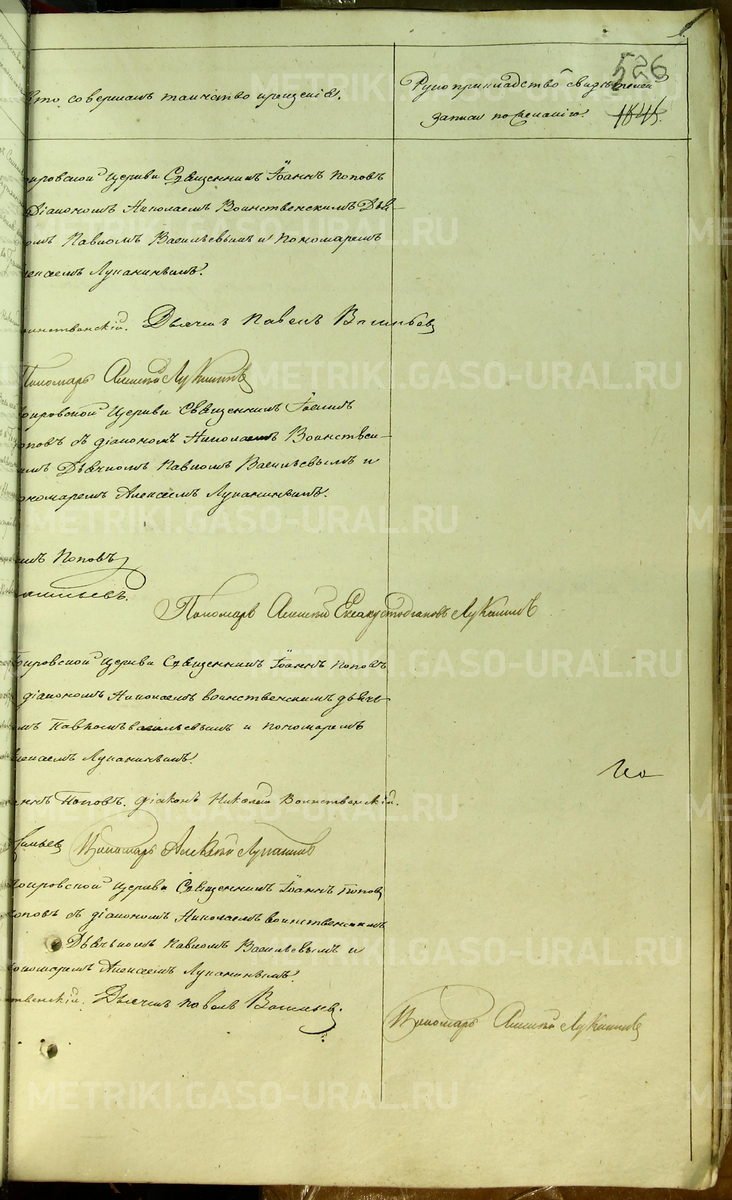 526
Кто совершалъ таинство крещенія.
Рукоприкладство свидѣтелей
записи по желанію.
1845.
кровской Церкви Священникъ Іоаннъ Поповъ
Діакономъ Николаемъ Воинственскимъ Дья-
комъ Павломъ Васильевымъ и Пономаремъ
лексѣемъ Лупанинымъ.
инственскій. Дьячекъ Павелъ Васильевъ
Пономарь Алексѣй
кровской Церкви Священникъ Іоаннъ
Поповъ съ діакономъ Николаемъ Воинствен-
имъ Дьячкомъ Павломъ Васильевымъ и
ономаремъ Алексѣемъ Лупанинымъ.
Поповъ
сильевъ.
Пономарь Алексѣй
кровской Церкви Священникъ Іоаннъ Поповъ
діакономъ Николаемъ Воинственскимъ дьяч-
мъ Павломъ Васильевымъ и пономаремъ
лексѣемъ Лупанинымъ.
аннъ Поповъ. діаконъ Николай Воинственскій.
сильевъ Пономарь Алексѣй Лупанинъ
кровской Церкви Священникъ Іоаннъ Попов
оповъ съ діакономъ Николаемъ Воинственскимъ
Дьячкомъ Павломъ Васильевымъ и
ономаремъ Алексѣемъ Лупанинымъ.
ственскій. Дьячекъ Павелъ Васильевъ.
Пономарь Алексѣй
METRIKI.GASO-URAL.RU